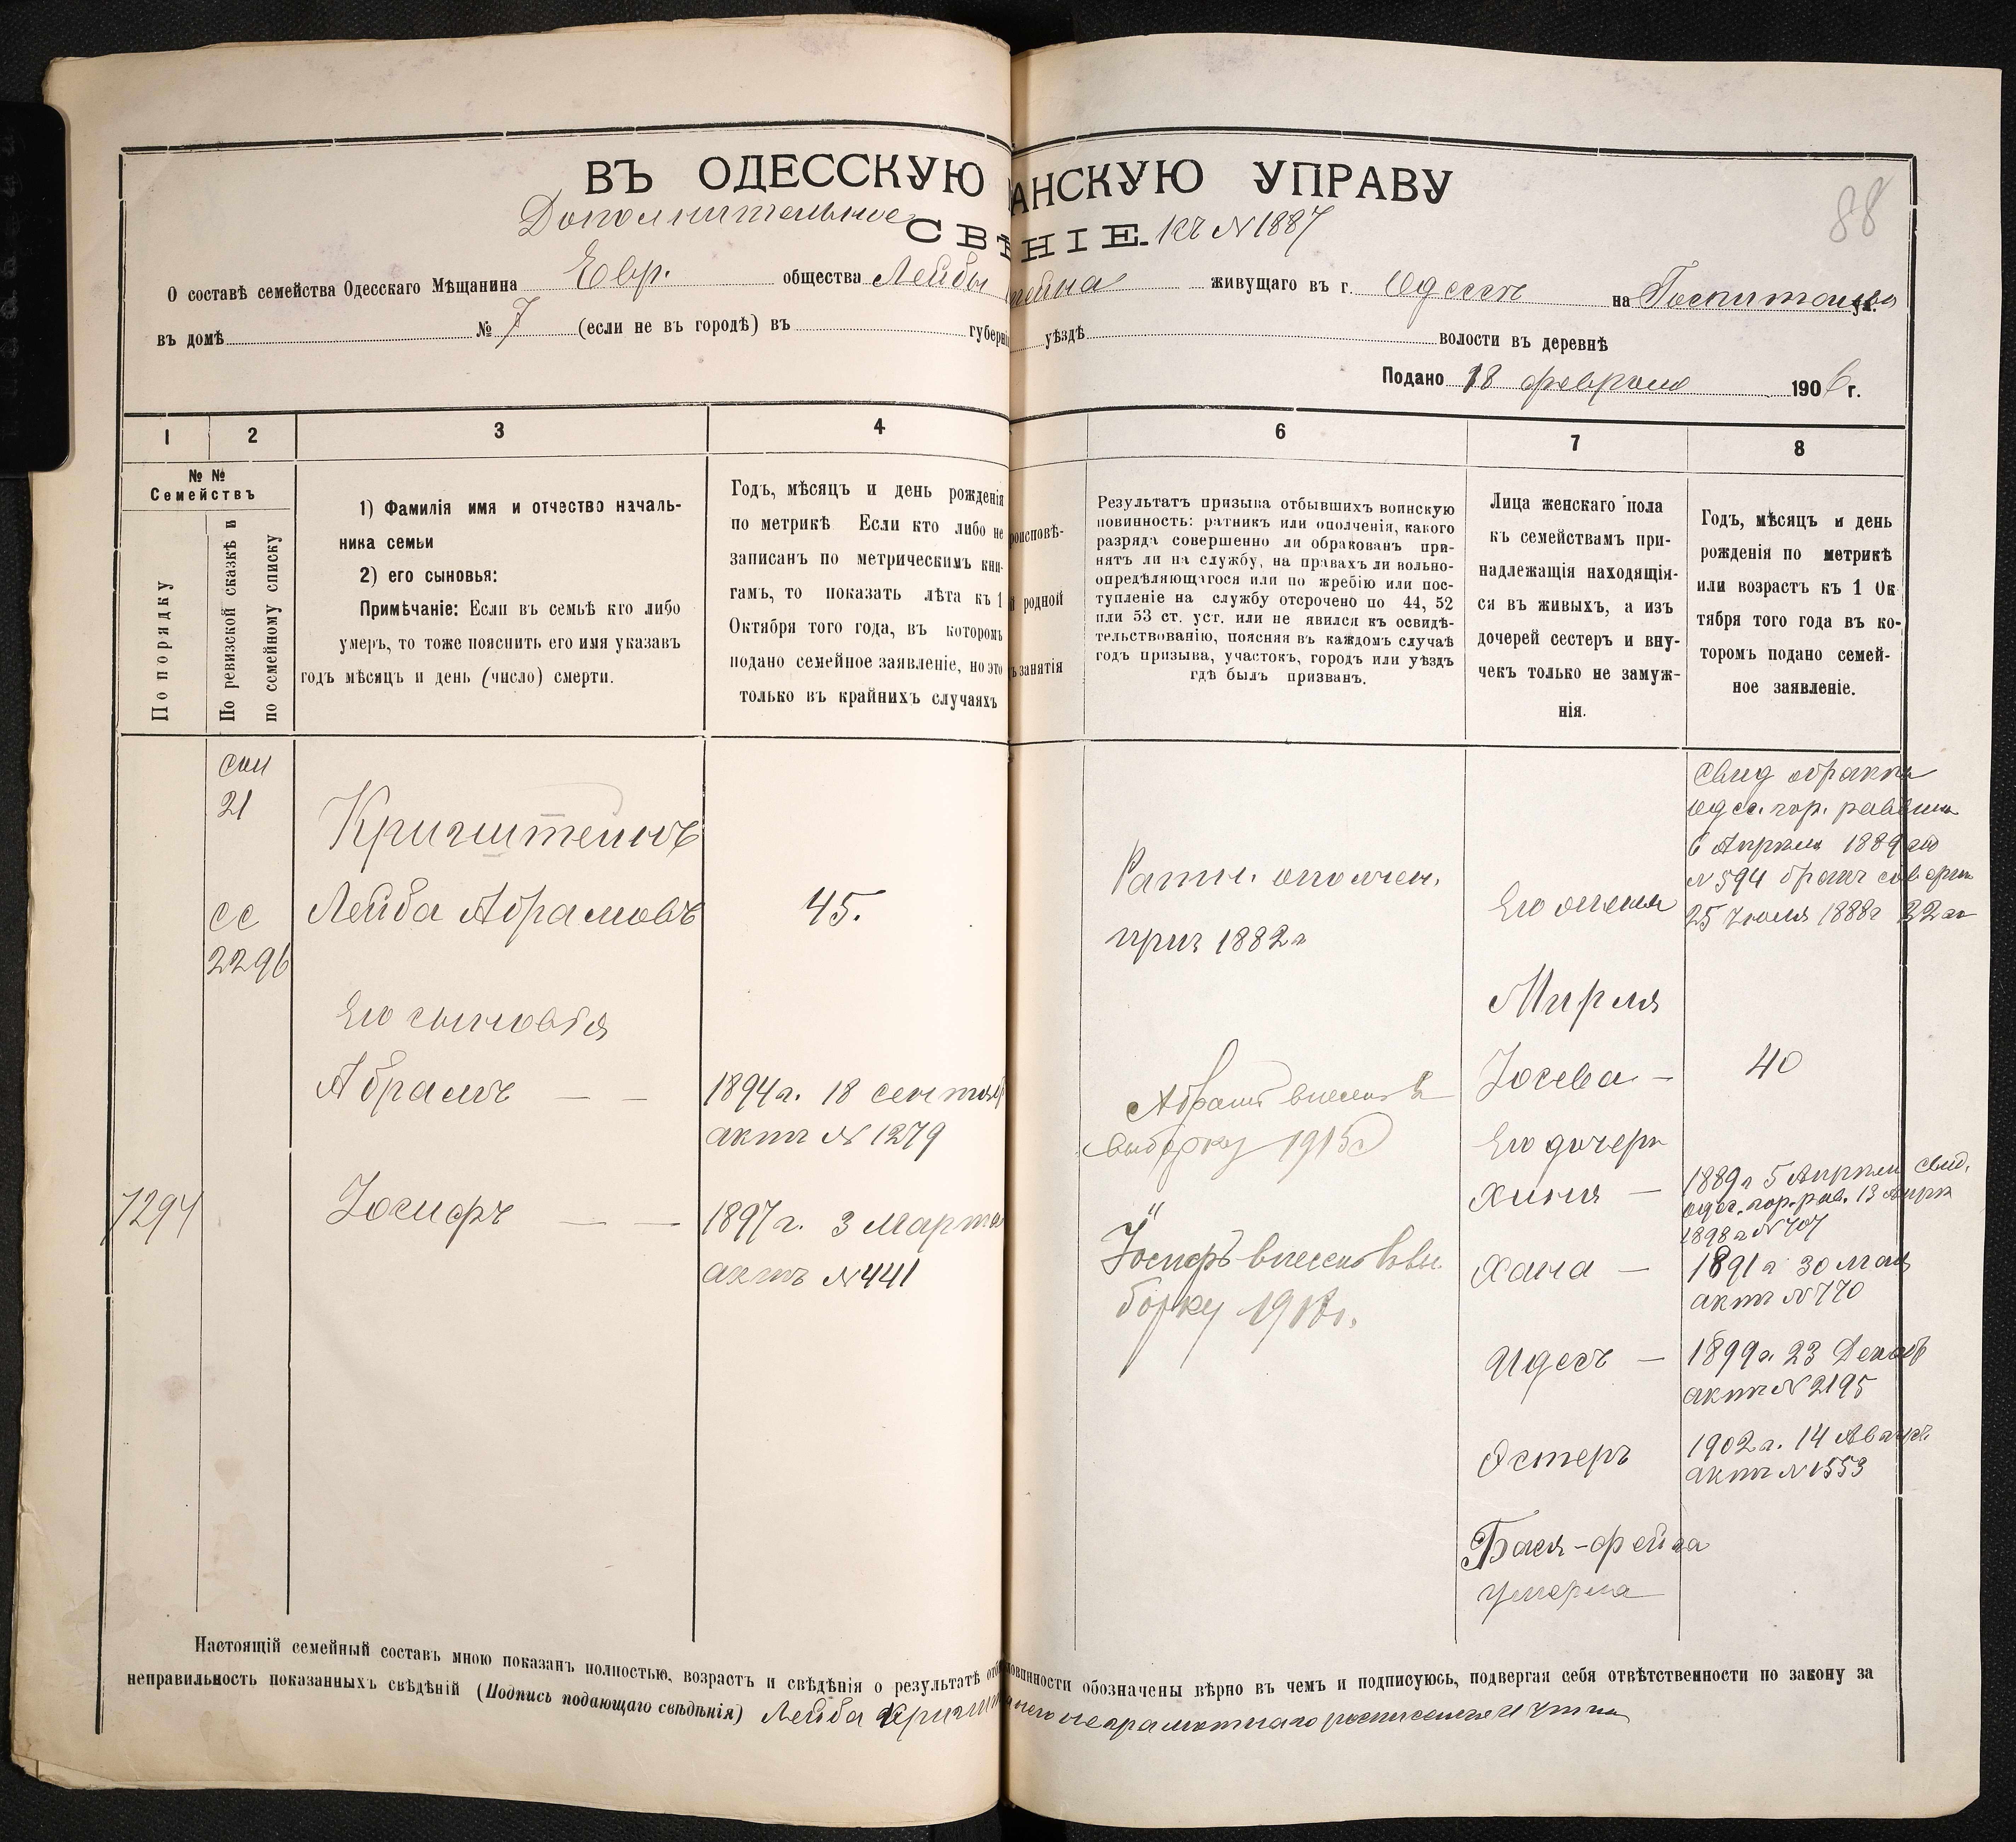 ВЪ ОДЕССКУЮ АНСКУЮ УПРАВУ
88
Дополнительное СВѢ НІЕ. къ № 1887
О составѣ семейства Одесскаго Мѣщанина Евр. общества Лейбы живущаго въ г. Одессѣ на ул.
въ домѣ № 7 (если не въ городѣ) въ губерні уѣздѣ волости въ деревнѣ
Подано 18 февраля 1906 г.
1
2
3
4
6
7
8
№ №
Семействъ
По порядку
По ревизской сказкѣ и
по семейному списку
1) Фамилія имя и отчество началь-
ника семьи
2) его сыновья:
Примѣчаніе: Если въ семьѣ кто либо
умеръ, то тоже пояснить его имя указавъ
годъ мѣсяцъ и день (число) смерти.
Годъ, мѣсяцъ и день рожденія
по метрикѣ Если кто либо не
записанъ по метрическимъ кни-
гамъ, то показать лѣта къ 1
Октября того года, въ которомъ
подано семейное заявленіе, но это
только въ крайнихъ случаяхъ
роисповѣ-
родной
занятія
Результатъ призыва отбывшихъ воинскую
повинность: ратникъ или ополченія, какого
разряда совершенно ли обракованъ при-
нятъ ли на службу, на правахъ ли вольно-
опредѣляющагося или по жребію или пос-
тупленіе на службу отсрочено по 44, 52
или 53 ст. уст. или не явился къ освидѣ-
тельствованію, поясняя въ каждомъ случаѣ
годъ призыва, участокъ, городъ или уѣздъ
гдѣ былъ призванъ.
Лица женскаго пола
къ семействамъ при-
надлежащія находящія-
ся въ живыхъ, а изъ
дочерей сестеръ и вну-
чекъ только не замуж-
нія.
Годъ, мѣсяцъ и день
рожденія по метрикѣ
или возрастъ къ 1 Ок
тября того года въ ко-
торомъ подано семей-
ное заявленіе.
21
Кригштейнъ
сс
2296
Лейба Абрамовъ
45.
Его сыновья
Абрамъ — —
1894 г. 18 сентяб
актъ № 1279
7294
Іосифъ — —
1897 г. 3 Марта
актъ № 441
Ратн. ополчен.
приз 1882 г
Абрамъ внесенъ в
выборку 1915 г
Іосифъ внесенъ в вы
борку
Его жена
Мирля
Іосева —
Его дочери
Хиня —
Хана —
Идесъ —
Эстеръ
Бася-фейга
умерла
Свид о бракѣ
Одес. гор. раввина
6 Апрѣля 1889
№ 594 бракъ
25 Іюля 1888 г
40
1889 г 5 Апрѣля свид.
одес. гор. рав. 13 Апрѣ
1898 г № 707
1891 г 30 мая
актъ № 770
1899 г. 23 Декаб
актъ № 2195
1902 г. 14 Август
актъ № 1553
Настоящій семейный составъ мною показанъ полностью, возрастъ и свѣдѣнія о результатѣ отб повинности обозначены вѣрно въ чемъ и подписуюсь, подвергая себя отвѣтственности по закону за
неправильность показанныхъ свѣдѣній (Подпись подающаго свѣдѣнія) Лейба неграмотнаго